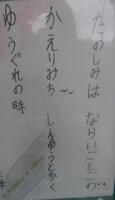 たのしみは ならいごとの
かえりみち しんゆうと歩く
ゆうぐれの時